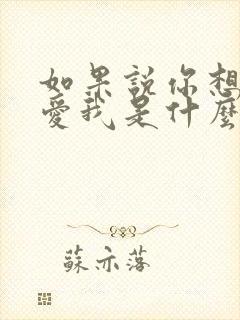 如果説你想
愛我是什麽
蘇亦落